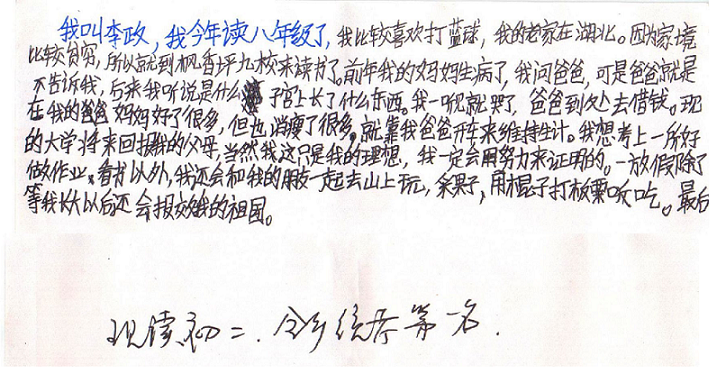 我叫李政，我今年读八年级了，我比较喜欢打蓝球，我的老家在湖北。因为家境
比较贫穷，所以就到枫香坪九校来读书了。前年我的妈妈生病了，我问爸爸，可是爸爸就是
不告诉我，后来我听说是什么 子宫上长了什么东西。我一听就哭了，爸爸到处去借钱。现
在我的爸爸妈妈好了很多，但也消瘦了很多，就靠我爸爸开车来维持生计。我想考上一所好
的大学将来回报我的父母，当然我这只是我的理想，我一定会用努力来证明的。一放假除了
做作业，看书以外，我还会和我的朋友一起去山上玩，采果子，用棍子打板栗吃。最后
等我长大以后还会报效我的祖国。
现读初二．全乡统考第一名．